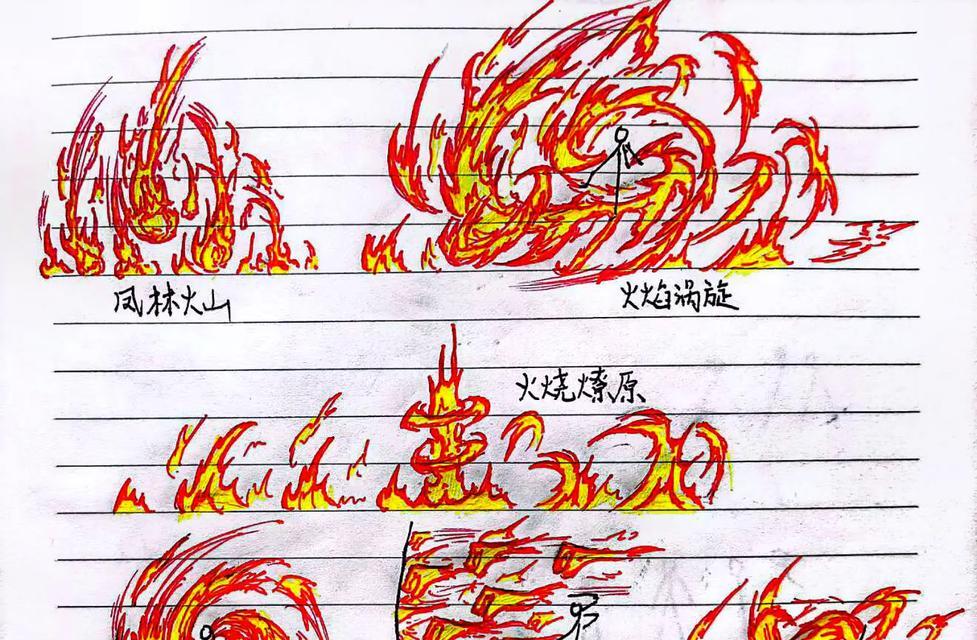 凤林火山
火焰涡旋
火烧燎原